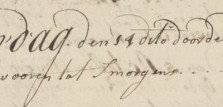 dag. den 14 dito door de
vooren tot Smorgens